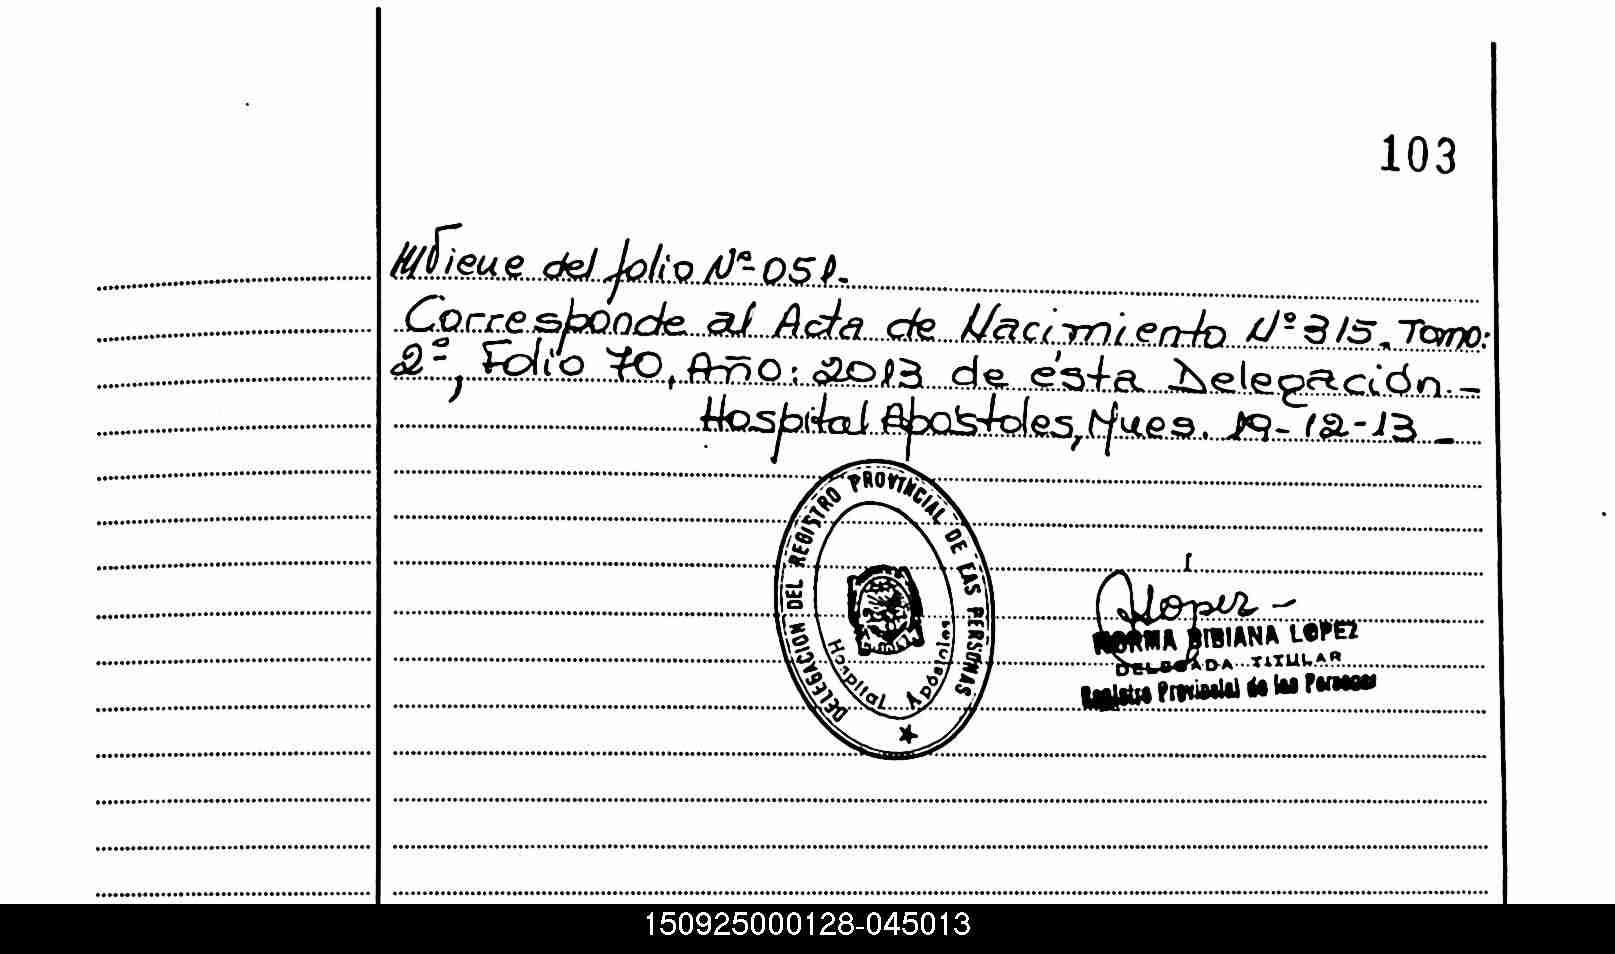 103
///Viene del folio Nº 051.
Corresponde al Acta de Nacimiento Nº 315. Tomo:
2º, Folio 70, Año: 2013 de ésta Delegación.-
Hospital Apóstoles, Mnes. 19-12-13-
DELEGACION DEL REGISTRO PROVINCIAL DE LAS PERSONAS
Hospital Apóstoles
NORMA BIBIANA LOPEZ
DELEGADA TITULAR
Registro Provincial de las Personas
150925000128-045013